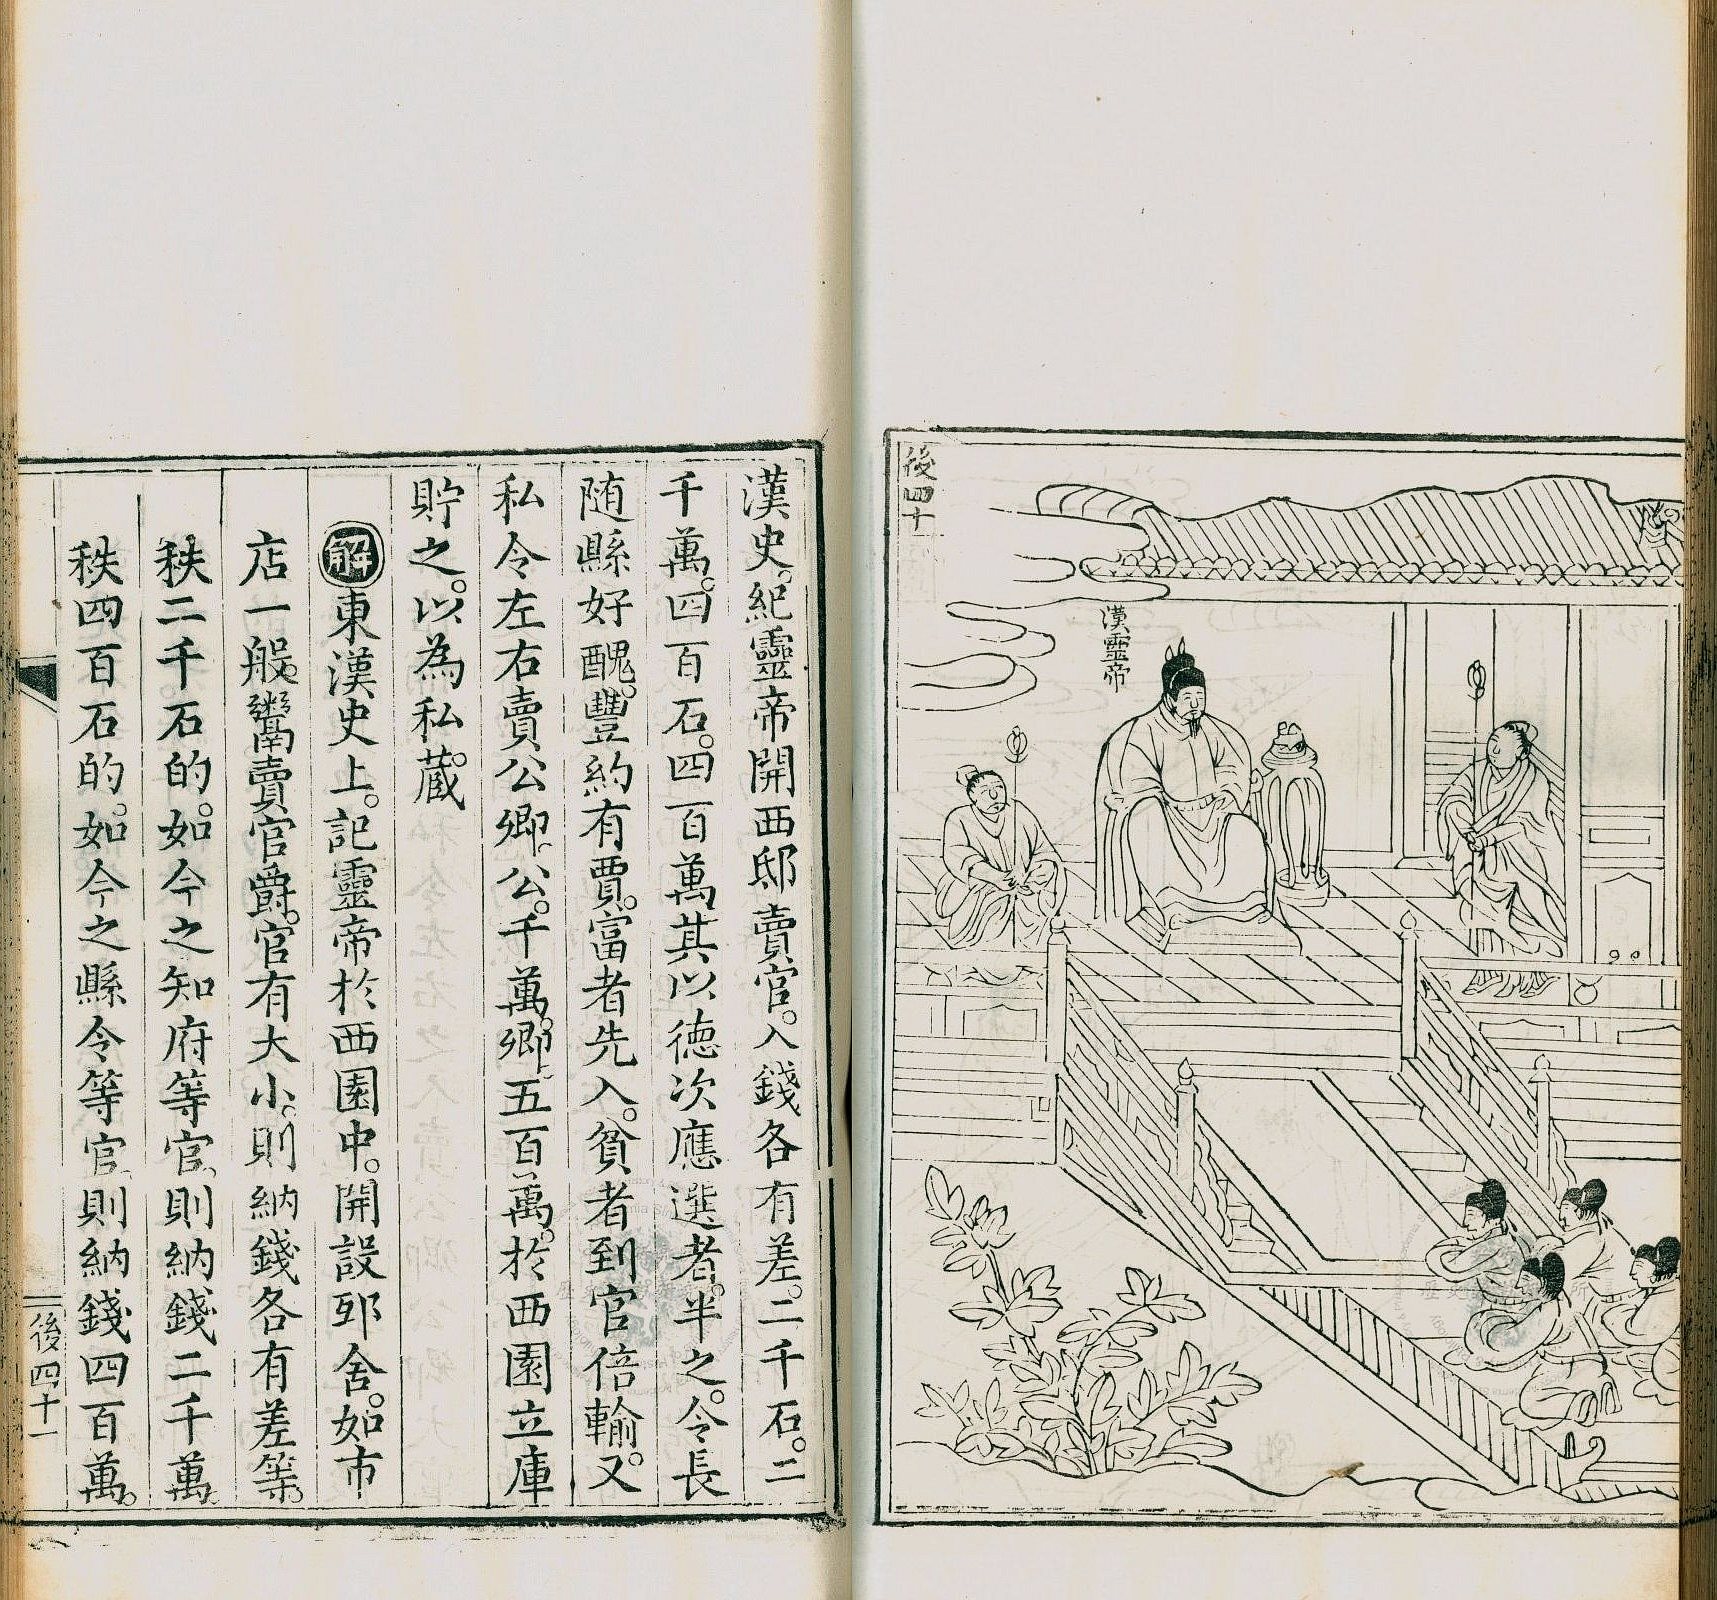 後四十
漢靈帝
漢史。紀靈帝開西邸賣官。入錢各有差。二千石。二
千萬。四百石。四百萬其以德次應選者。半之。令長
随縣好醜。豐約有賈。富者先入。貧者到官倍輸。又
私令左右賣公卿。公。千萬。卿。五百萬。於西園立庫
貯之。以為私藏。
解東漢史上。記靈帝於西園中。開設邸舍。如市
店一般。鬻賣官爵。官有大小。則納錢各有差等。
秩二千石的。如今之知府等官。則納錢二千萬。
秩四百石的。如今之縣令等官。則納錢四百萬。
後四十一